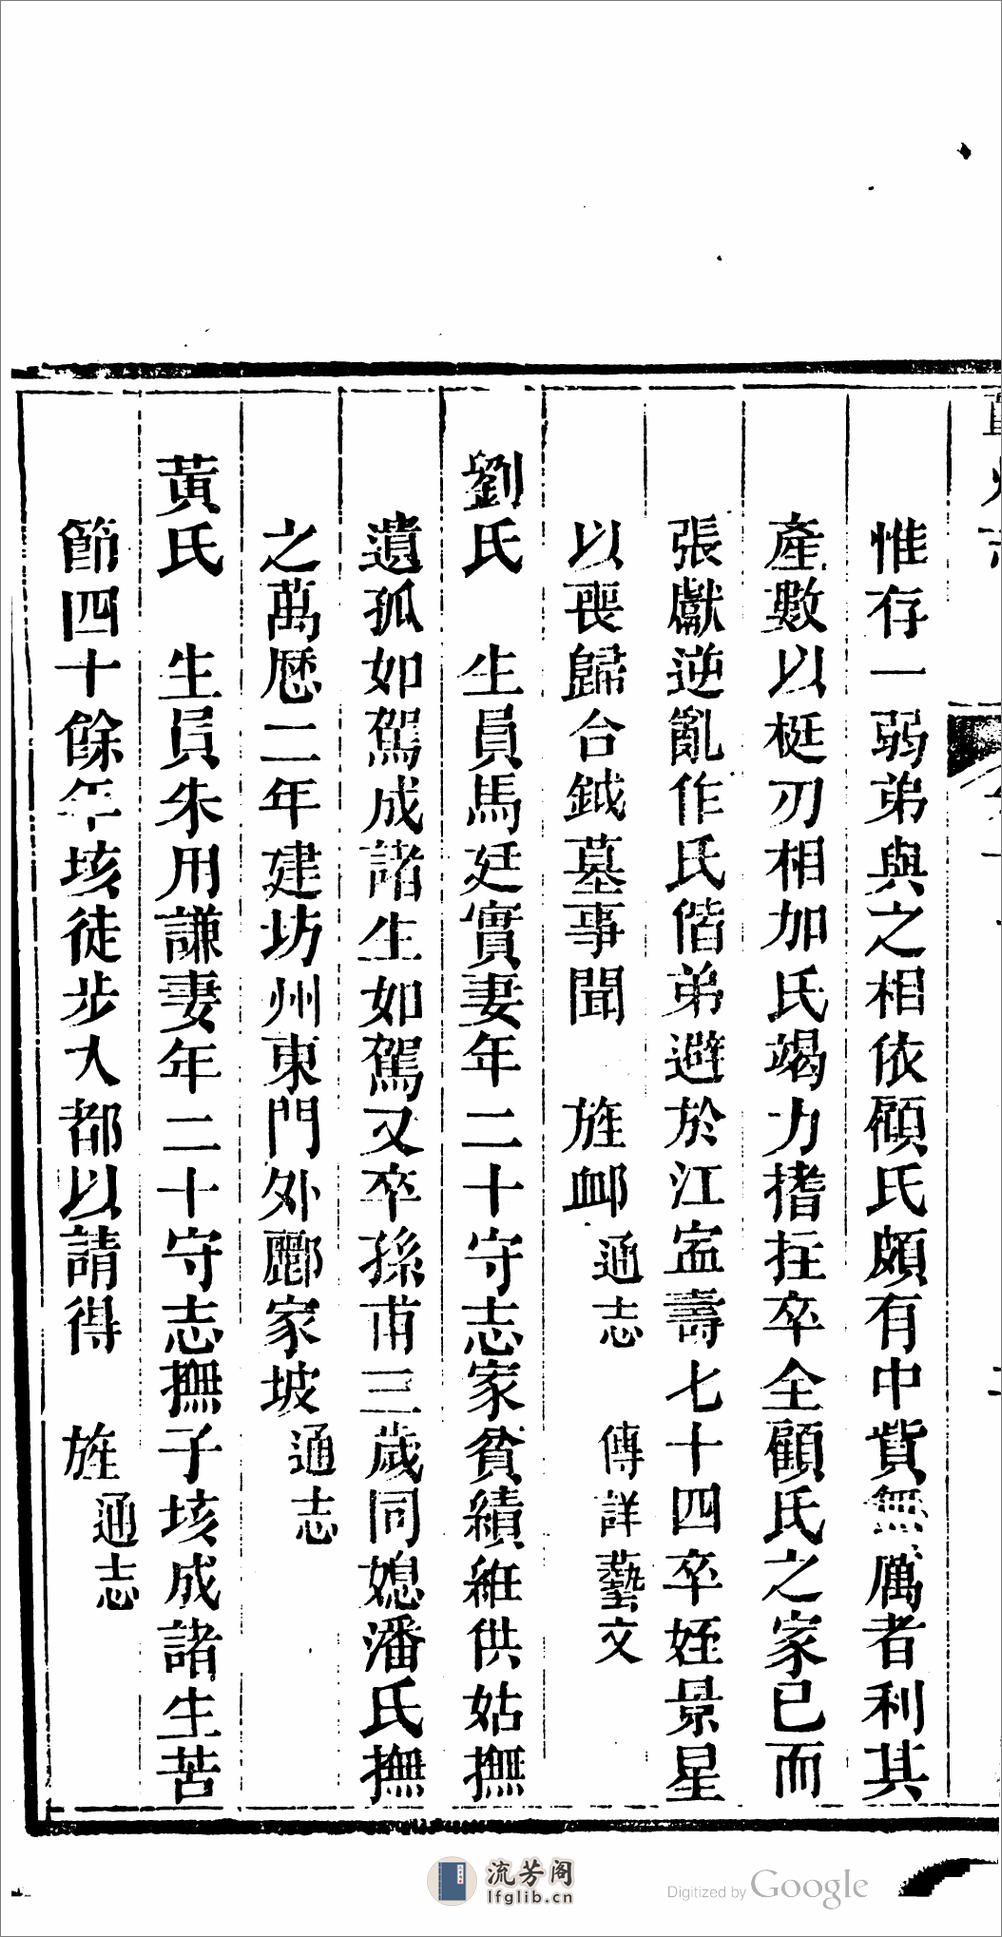 惟存一弱弟與之相依顧氏頗有中貲無厲者利其
產數以梃刃相加氏竭力搘拄卒全顧氏之家已而
張獻逆亂作氏偕弟避於江寍壽七十四卒姪景星
以喪歸合鉞墓事聞　旌䘏通志　傳詳藝文
劉氏　生員馬廷實妻年二十守志家貧績絍供姑撫
遺孤如駕成諸生如駕又卒孫甫三歲同媳潘氏撫
之萬厯二年建坊州東門外酈家坡通志
黃氏　生員朱用謙妻年二十守志撫子垓成諸生苦
節四十餘年垓徒步入都以請得　旌通志
流芳阁
lfglib.cn
Digitized by Google